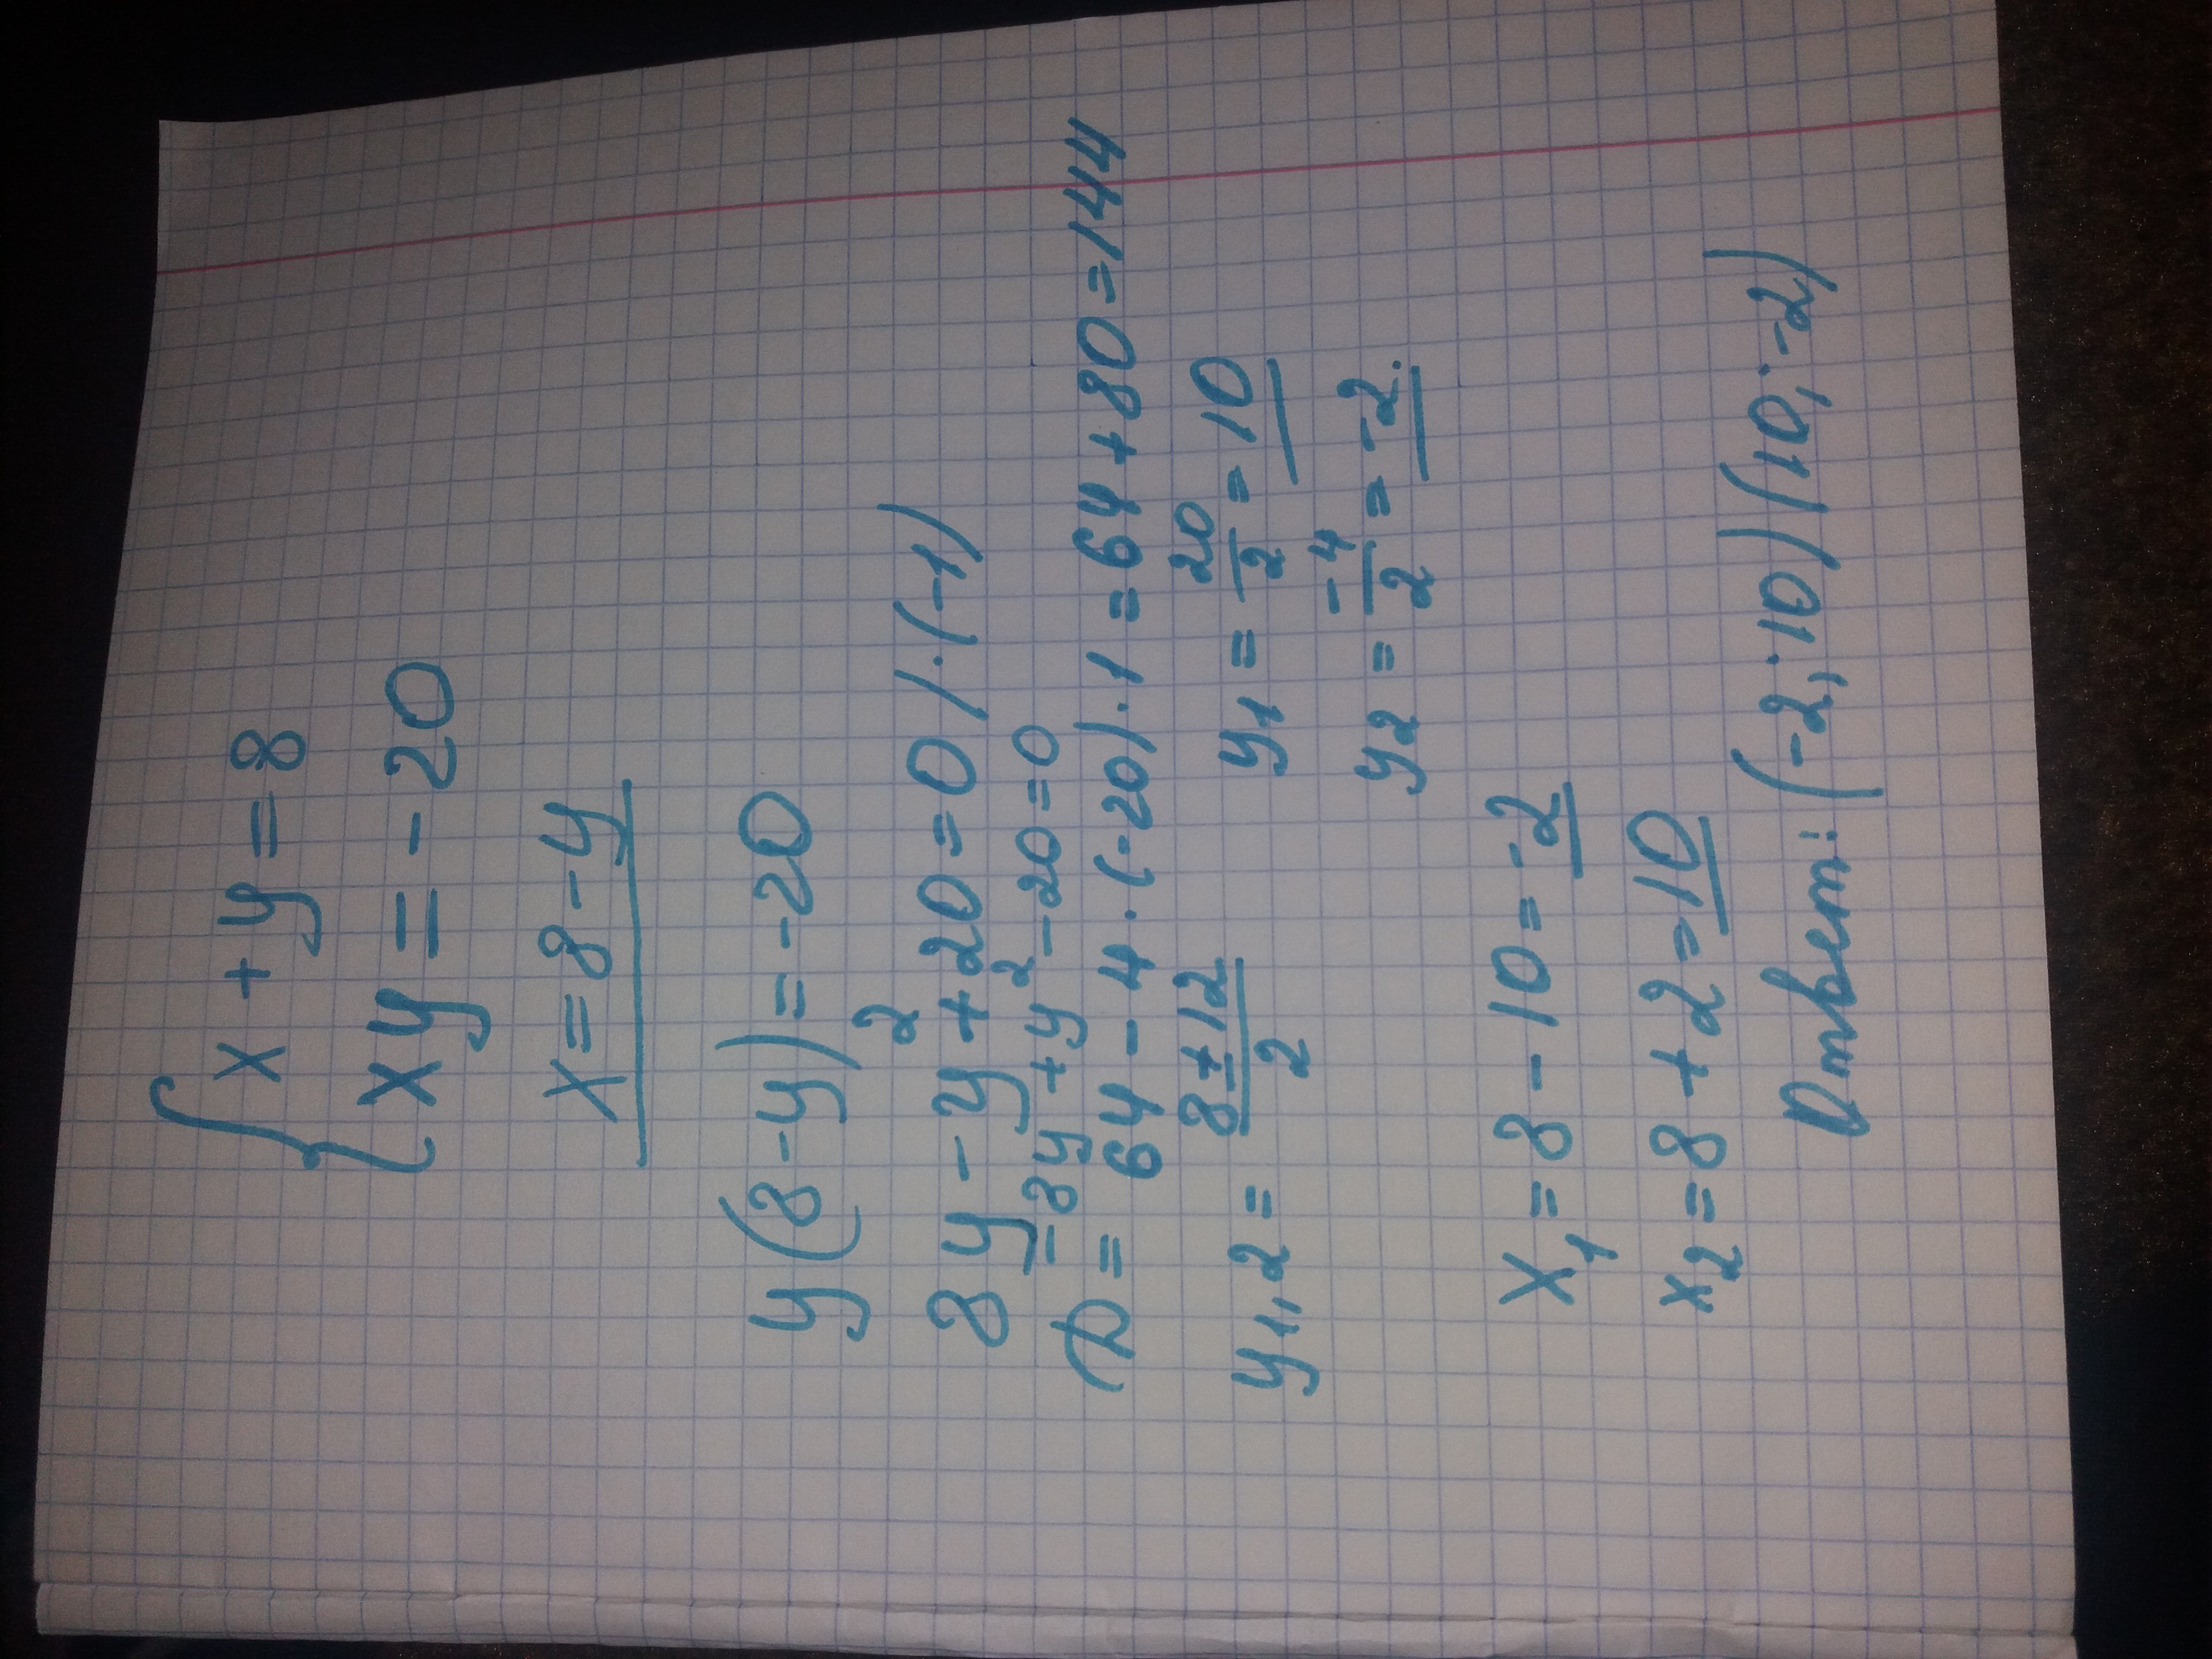 { x + y = 8
xy = -20
x = 8 - y
y(8-y) = -20
8y - y² + 20 = 0 / · (-1)
-8y + y² - 20 = 0
D = 64 - 4 · (-20) · 1 = 64 + 80 = 144
y1,2 = 8±12/2
y1 = 20/2 = 10
y2 = -4/2 = -2.
x1 = 8 - 10 = -2
x2 = 8 + 2 = 10
Ответ: (-2; 10)(10; -2)